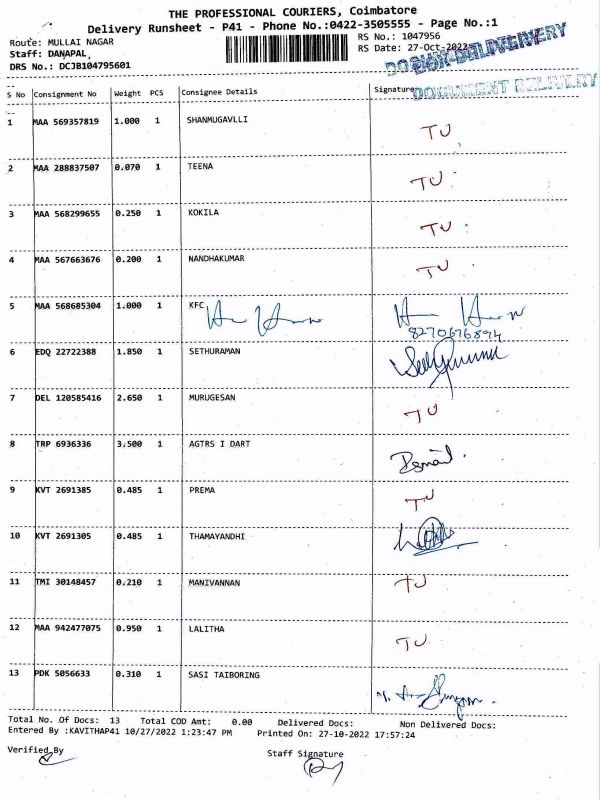 THE PROFESSIONAL COURIERS, Coimbatore
Delivery Runsheet - P41 - Phone No.:0422-3505555 - Page No.:1
Route: MULLAI NAGAR
RS No.: 1047956
Staff: DANAPAL,
RS Date: 27-Oct-2022
DRS No.: DCJB104795601
DOCUMENT DELIVERY
S No Consignment No Weight PCS Consignee Details Signature
1 MAA 569357819 1.000 1 SHANMUGAVLLI TU
2 MAA 288837507 0.070 1 TEENA TU
3 MAA 568299655 0.250 1 KOKILA TU
4 MAA 567663676 0.200 1 NANDHAKUMAR TU
5 MAA 568685304 1.000 1 KFC
8270676894
6 EDQ 22722388 1.850 1 SETHURAMAN
7 DEL 120585416 2.650 1 MURUGESAN TU
8 TRP 6936336 3.500 1 AGTRS I DART
9 KVT 2691385 0.485 1 PREMA TU
10 KVT 2691305 0.485 1 THAMAYANDHI
11 TMI 30148457 0.210 1 MANIVANNAN TU
12 MAA 942477075 0.950 1 LALITHA TU
13 PDK 5056633 0.310 1 SASI TAIBORING
Total No. Of Docs: 13 Total COD Amt: 0.00 Delivered Docs: Non Delivered Docs:
Entered By :KAVITHAP41 10/27/2022 1:23:47 PM Printed On: 27-10-2022 17:57:24
Verified By
Staff Signature